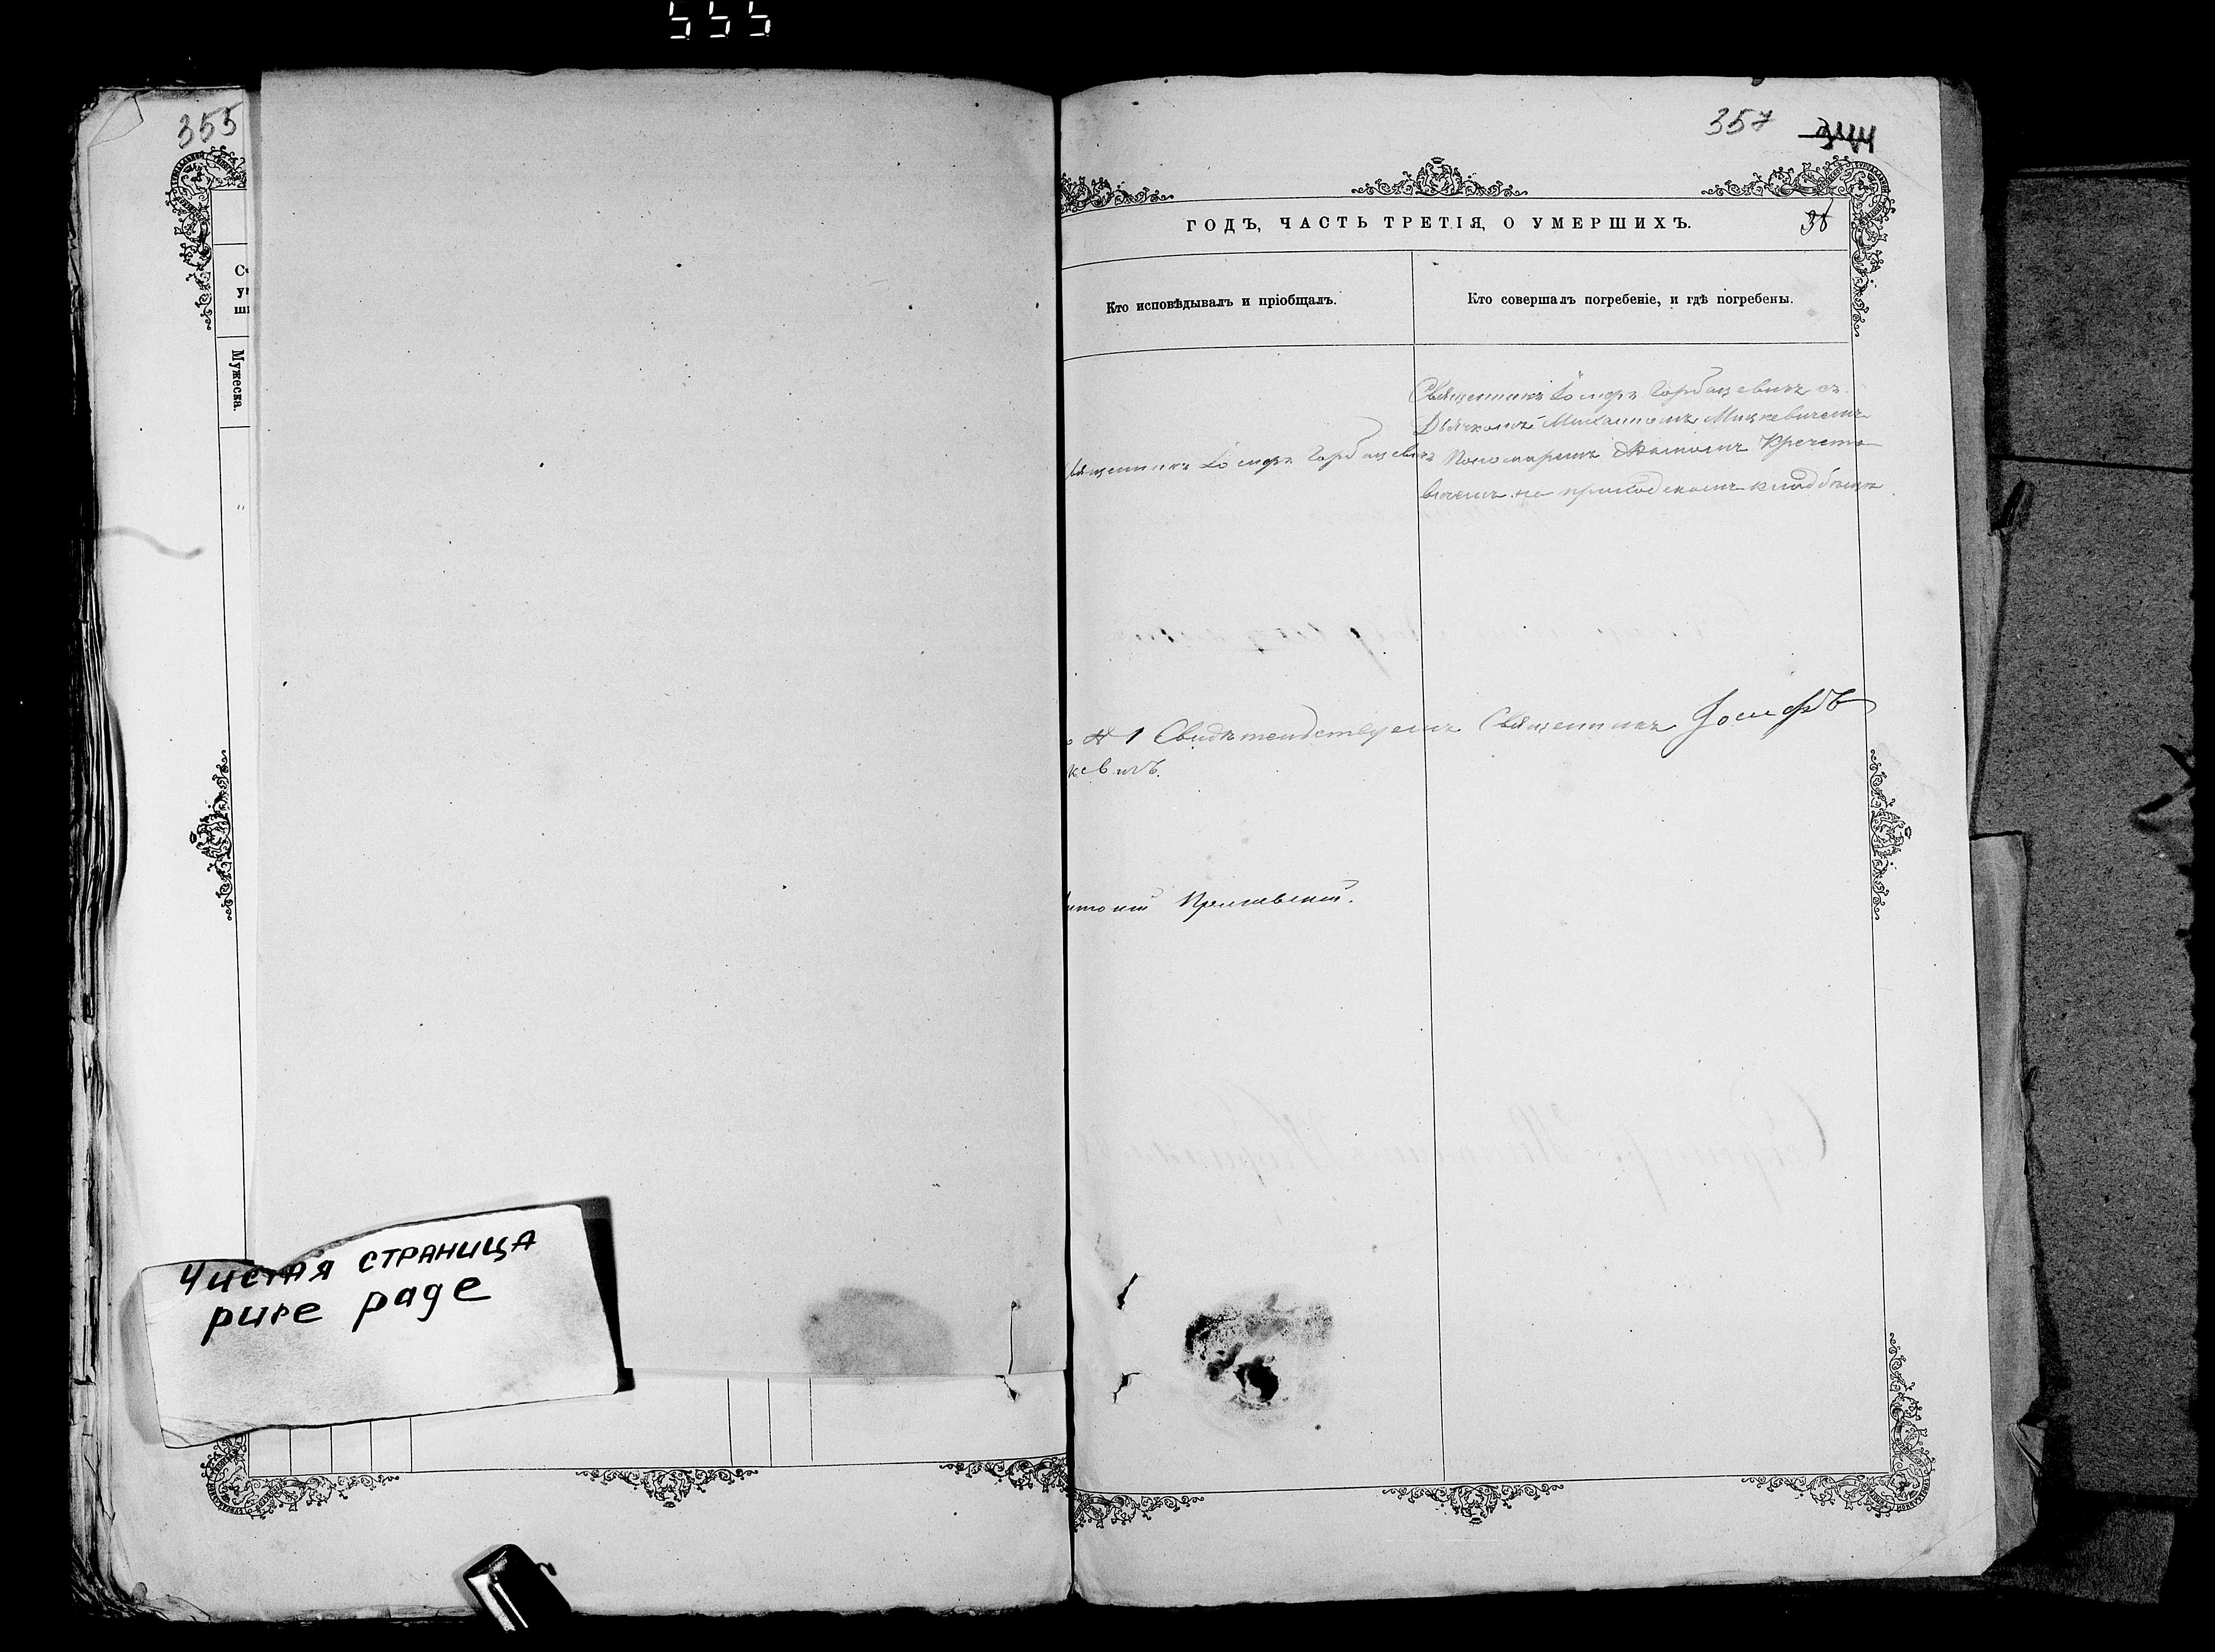 555
355
Мужеска.
Чистая страница
pure page
357 344
ГОДЪ, ЧАСТЬ ТРЕТІЯ, О УМЕРШИХЪ.
38
Кто исповѣдывалъ и пріобщалъ.
Кто совершалъ погребеніе, и гдѣ погребены.
Священникъ Іосифъ Горбацевичъ
Священникъ Іосифъ Горбацевичъ съ
Дьячкомъ Михаиломъ Мицкевичемъ
Пономаремъ
на приходскомъ кладбищѣ
№ 1 Свидѣтельствуемъ Священникъ Іосифъ